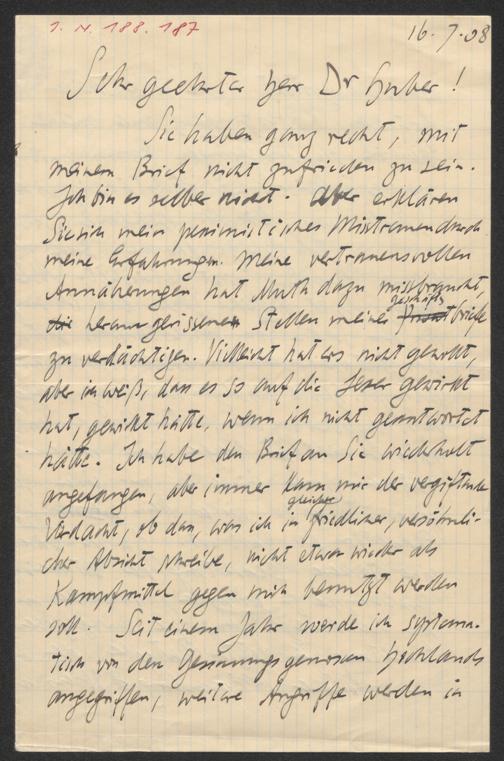 I. N. 188.187
16.7.08
Sehr geehrter Herr Dr Huber!
Sie haben ganz recht, mit
meinem Brief nicht zufrieden zu sein.
Ich bin es selber nicht. Aber erklären
Sie sich mein pessimistisches Misstrauen durch
meine Erfahrungen. Meine vertrauensvollen
Annäherungen hat Muth dazu missbraucht,
die herausgerissenen Stellen meiner Privat Geschäftsbriefe
zu verdächtigen. Vielleicht hat ers nicht gewollt,
aber ich weiß, dass es so auf die Leser gewirkt
hat, gewirkt hätte, wenn ich nicht geantwortet
hätte. Ich habe den Brief an Sie wiederholt
angefangen, aber immer kam mir der vergiftende
Verdacht, ob das, was ich in gleicher friedlicher, versöhnli-
cher Absicht schreibe, nicht etwa wieder als
Kampfmittel gegen mich benutzt werden
soll. Seit einem Jahr werde ich systema-
tisch von den Gesinnungsgenossen Hochlands
angegriffen, weitere Angriffe werden in